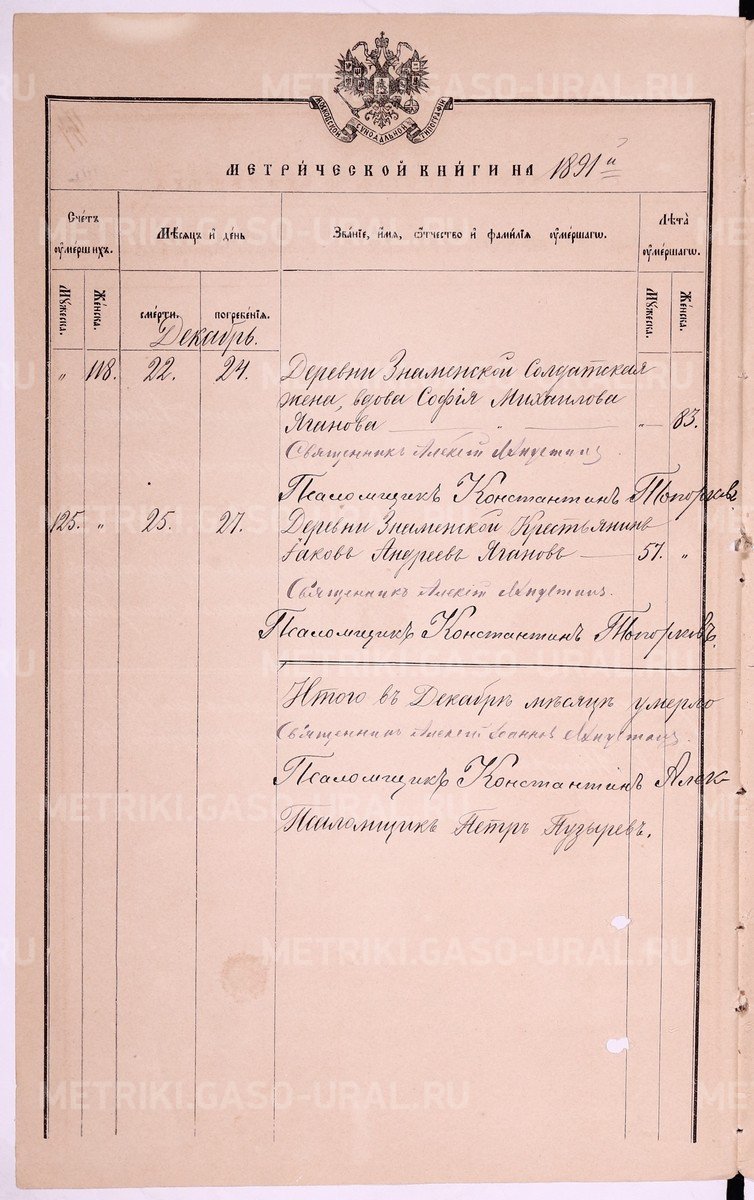 МОСКОВСКОЙ СИНОДАЛЬНОЙ ТИПОГРАФІИ
МЕТРИ́ЧЕСКОЙ КНИ́ГИ НА 1891 й
Сче́тъ ᲂумершихъ.
Мѣ́сяцъ и де́нь
Зва́нїе, и́мя, ѻ҆́тчество и фами́лїя ᲂумершагѡ.
Лѣта̀ ᲂумершагѡ.
Мꙋжеска. Же́нска.
сме́рти. погребе́нїя.
Мꙋжеска. Же́нска.
Декабрь.
" 118. 22. 24. Деревни Знаменской Солдатская
жена, вдова Софія Михаилова
Яганова " " 83.
Священникъ Алексій
Псаломщикъ Константинъ Топорковъ
125. " 25. 27. Деревни Знаменской Крестьянинъ
Іаковъ Андреевъ Ягановъ 57. "
Священникъ Алексій
Псаломщикъ Константинъ Топорковъ.
Итого въ Декабрѣ мѣсяцѣ умерло
Священникъ Алексій Іоанновъ
Псаломщикъ Константинъ Алек-
Псаломщикъ Петръ Пузыревъ.
METRIKI.GASO-URAL.RU